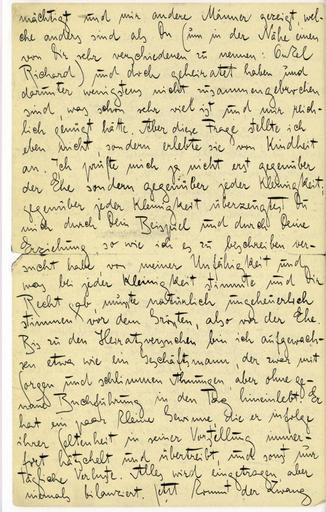 mächtigt und mir andere Männer gezeigt, wel-
che anders sind als Du (um in der Nähe einen
von Dir sehr verschiedenen zu nennen: Onkel
Richard) und doch geheiratet haben und
darunter wenigstens nicht zusammengebrochen
sind, was schon sehr viel ist und mir reich-
lich genügt hätte. Aber diese Frage stellte ich
eben nicht, sondern erlebte sie von Kindheit
an. Ich prüfte mich ja nicht erst gegenüber
der Ehe sondern gegenüber jeder Kleinigkeit;
gegenüber jeder Kleinigkeit überzeugtest Du
mich durch Dein Beispiel und durch Deine
Erziehung so wie ich es zu beschreiben ver-
sucht habe, von meiner Unfähigkeit und
was bei jeder Kleinigkeit stimmte und Dir
Recht gab, musste natürlich ungeheuerlich
stimmen vor dem Grössten, also vor der Ehe.
Bis zu den Heiratsversuchen bin ich aufgewach-
sen etwa wie ein Geschäftsmann, der zwar mit
Sorgen und schlimmen Ahnungen aber ohne ge-
naue Buchführung in den Tag hineinlebt. Er
hat ein paar kleine Gewinne, die er infolge
ihrer Seltenheit in seiner Vorstellung immer-
fort hätschelt und übertreibt und sonst nur
tägliche Verluste. Alles wird eingetragen, aber
niemals bilanziert. Jetzt kommt der Zwang